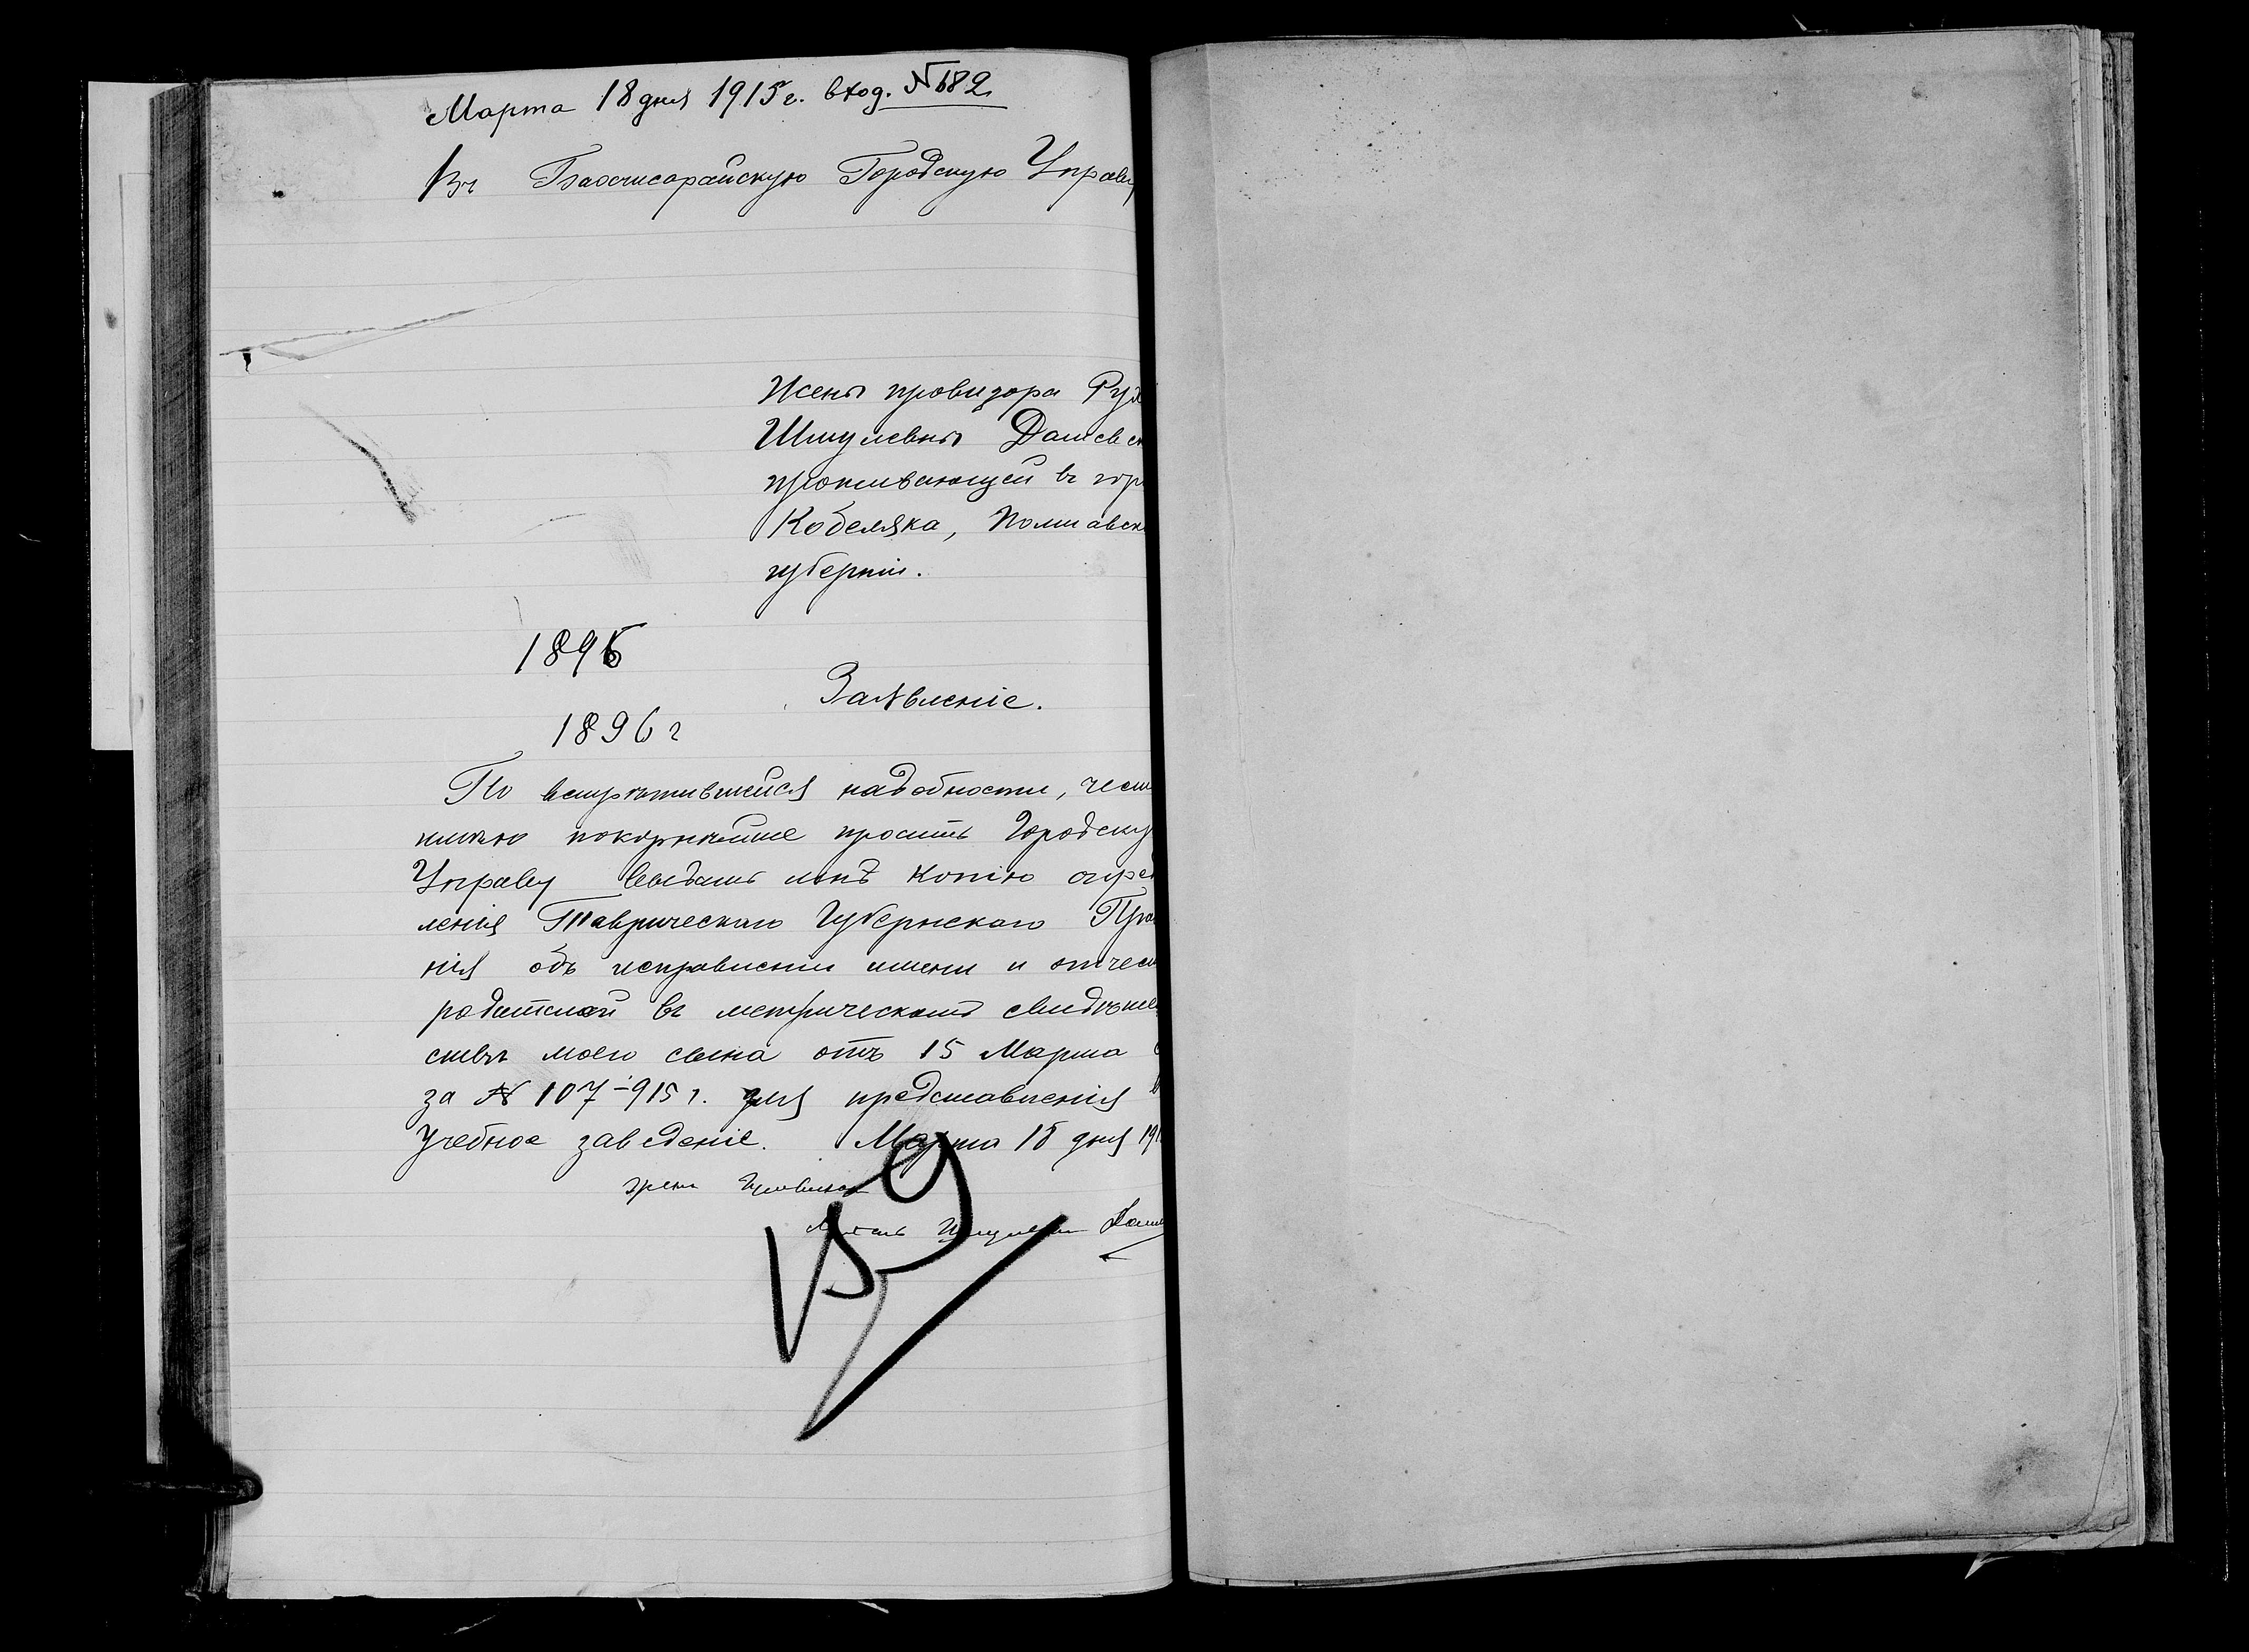 Марта 18 дня 1915 г. вход. № 682
Въ Бахчисарайскую Городскую Управу
Жены провизора Рух
Шмулевны Дашевск
проживающей въ гор
Кобеляка, Полтавск
губернiи.
1896
Заявленiе.
1896 г
По встрѣтившейся надобности, чест
имѣю покорнѣйше просить Городску
Управу выдать мнѣ копiю опред
ленiя Таврическаго Губернскаго Прав
нiя объ исправленiи имени и отчест
родителей въ метрическомъ свидѣтел
ствѣ моего сына отъ 15 Марта
за № 107-915 г. для представленiя въ
Учебное заведенiе. Марта 18 дня 191